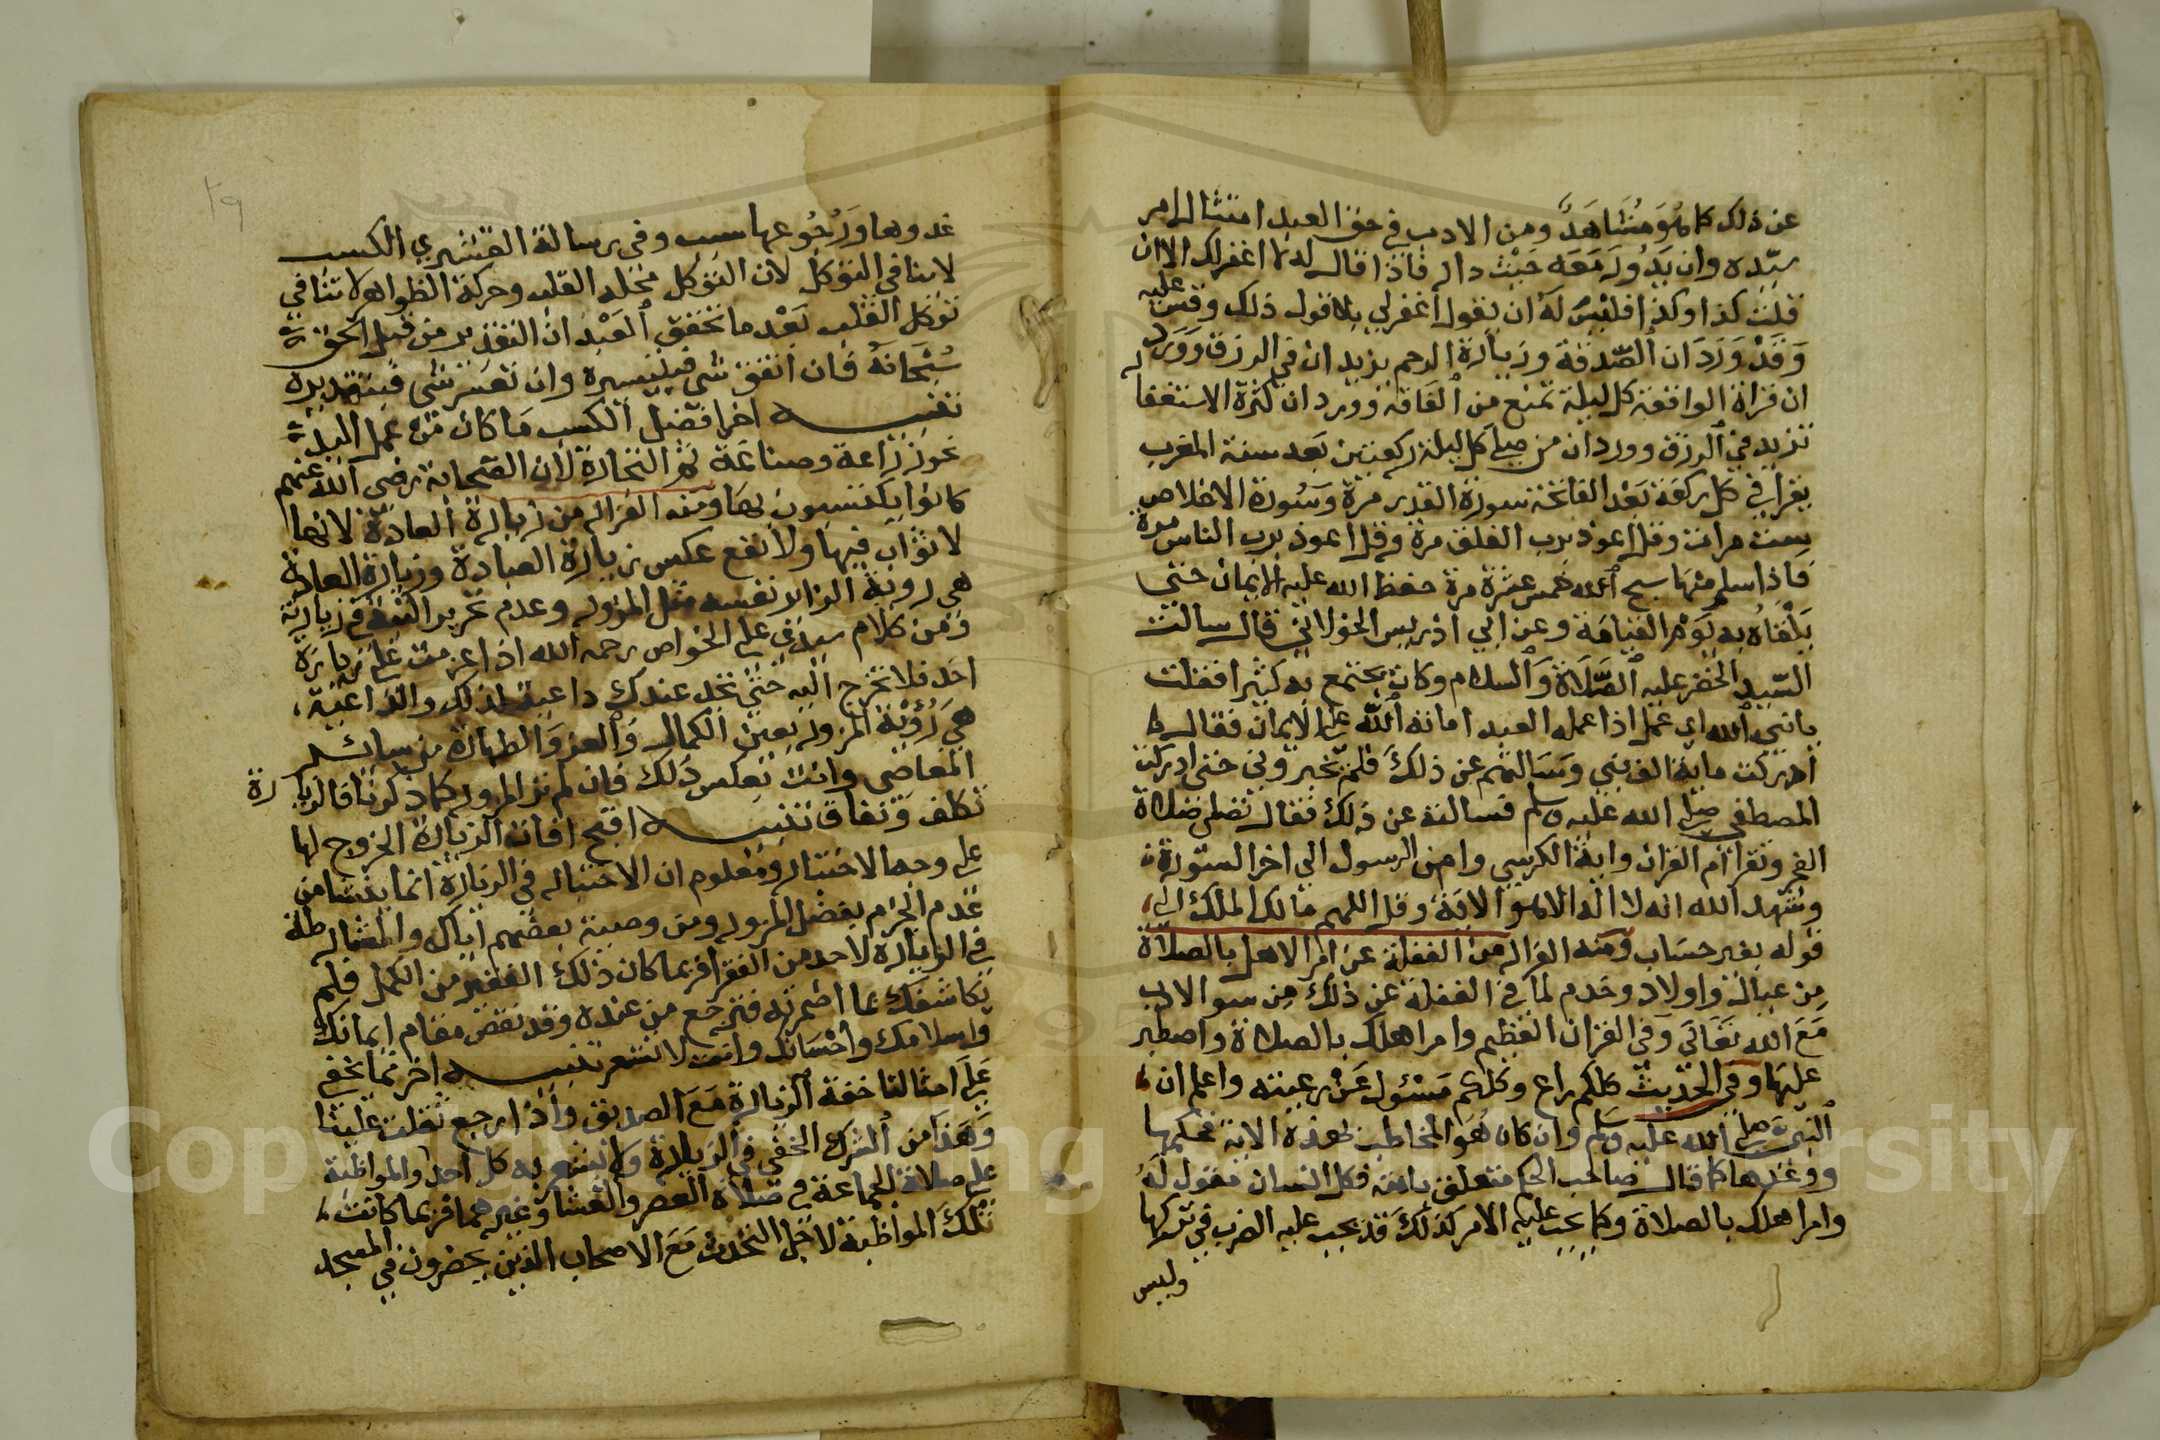 عن ذلك كما هو مشاهد ومن الادب في حق العبد امتثال امر
سيده وان يدور معه حيث دار فاذا قال له لا اغفر لك الا ان
قلت كذا وكذا فليس له ان يقول اغفر لي بلا قول ذلك وقس عليه
وقد ورد ان الصدقة وزيارة الرحم يزيدان في الرزق وورد
ان قراة الواقعة كل ليلة تمنع من الفاقة وورد ان كثرة الاستغفار
تزيد في الرزق وورد ان من صلى كل ليلة ركعتين بعد سنة المغرب
يقرا في كل ركعة بعد الفاتحة سورة القدر مرة وسورة الاخلاص
ست مرات وقل اعوذ برب الفلق مرة وقل اعوذ برب الناس مرة
فاذا سلم منها سبح الله خمس عشرة مرة حفظ الله عليه الايمان حتى
يلقاه به يوم القيامة وعن ابي ادريس الخولاني قال سالت
السيد الخضر عليه الصلاة والسلام وكان يجتمع به كثيرا فقلت
يا نبي الله اي عمل اذا عمله العبد اماته الله على الايمان فقال لي
ادركت ماية الف نبي وسالتهم عن ذلك فلم يخبروني حتى ادركت
المصطفى صلى الله عليه وسلم فسالته عن ذلك فقال تصلي صلاة
الفجر وتقرا ام القران واية الكرسي وامن الرسول الى اخر السورة
وشهد الله انه لا اله الا هو الاية وقل اللهم مالك الملك الى
قوله بغير حساب ومنه الغرالہ من الغفلة عن امر الاهل بالصلاة
من عيال واولاد وخدم لما في الغفلة عن ذلك من سو الادب
مع الله تعالى وفي القران العظيم وامر اهلك بالصلاة واصطبر
عليها وفي الحديث كلكم راع وكلكم مسئول عن رعيته واعلم ان
النبي صلى الله عليه وسلم وان كان هو المخاطب بهذه الاية فحكمها
ووعدها كما قال صاحب الحكم متعلق بامته فكل انسان مقول له
وامر اهلك بالصلاة وكما يجب عليه الامر كذلك قد يجب عليه الضرب في تركها
وليس
٢٩
غدوها ورجوعها سبب وفي رسالة القشيري الكسب
لا ينافي التوكل لان التوكل محله القلب وحركة الظواهر لا تنافي
توكل القلب بعد ما تحقق العبد ان التقدير من قبل الحق
سبحانه فان اتفق شي فبتيسيره وان تعسر شي فبتقديره
تنبيه اخر افضل الكسب ما كان من عمل اليد
نحو زراعة وصناعة ثم التجارة لان الصحابة رضي الله عنهم
كانوا يكتسبون بها ومنه الغرالہ من زيارة العادة لانها
لا ثواب فيها ولا نفع عكس زيارة العبادة وزيارة العادة
هي روية الزائر نفسه مثل المزور وعدم تحرير النية في زيارته
ومن كلام سيدي علي الخواص رحمه الله اذا عزمت على زيارة
احد فلا تخرج اليه حتى تجد عندك داعية لذلك والداعية
هي رؤية المزور بعين الكمال والعز والطهارة من سائر
المعاصي وانت بعكس ذلك فان لم تر المزور كما ذكرنا فالزيارة
تكلف ونفاق تنبيه اقبح افات الزيارة الخروج لها
على وجه الامتنان ومعلوم ان الامتنان في الزيارة انما ينشا من
عدم الجزم بفضل المزور ومن وصية بعضهم اياك والمشاططة
في الزيارة لاحد من الفقرا فربما كان ذلك الفقير من الكمل فلم
يكاشفك بما اضمرته فترجع من عنده وقد نقص مقام ايمانك
واسلامك واحسانك وانت لا تشعر تنبيه اخر مما يخفى
على امثالنا خفة الزيارة مع الصديق واذا رجع ثقلت علينا
وهذا من الشرك الخفي في الزيارة ولا يشعر به كل احد والمواظبة
على صلاة الجماعة في صلاة العصر والعشا وغيرهما فربما كانت
تلك المواظبة لاجل التحدث مع الاصحاب الذين يحضرون في المسجد
Copyright © King Saud University